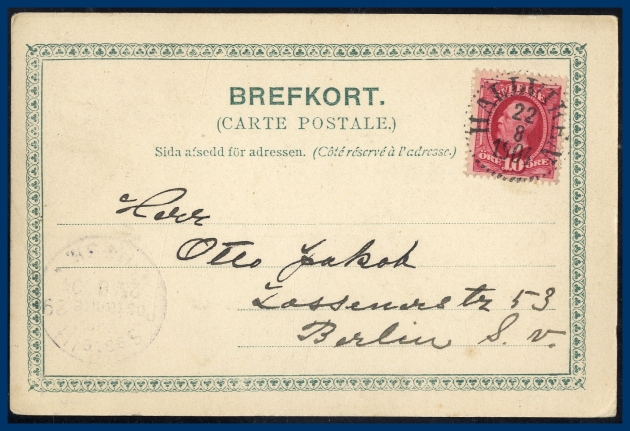 BREFKORT.
(CARTE POSTALE.)
Sida afsedd för adressen. (Côté réservé à l'adresse.)
HALLVIKEN
22
8
ÖRE 10 ÖRE
Herr
Otto Jakob
Zossenerstr 53
Berlin S. v.